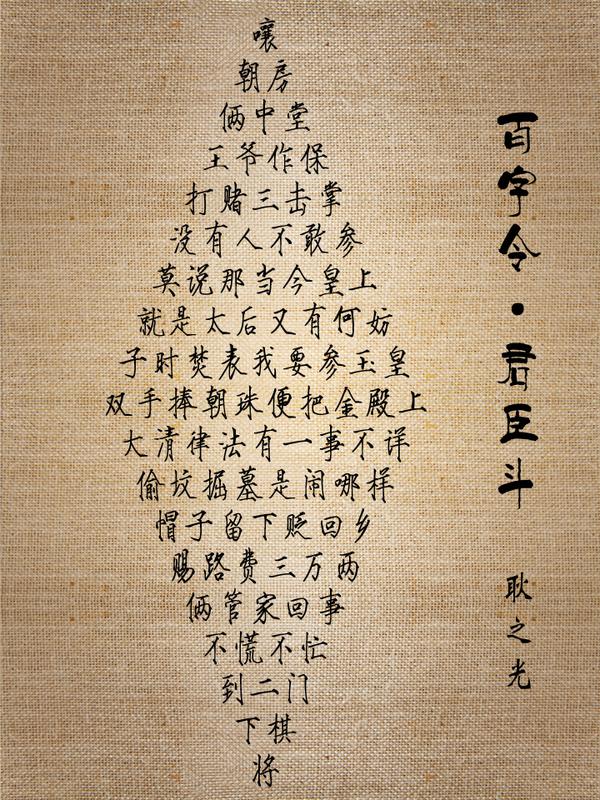 百字令·君臣斗
耿之光
嚷
朝房
俩中堂
王爷作保
打赌三击掌
没有人不敢参
莫说那当今皇上
就是太后又有何妨
子时焚表我要参玉皇
双手捧朝珠便把金殿上
大清律法有一事不详
偷坟掘墓是闹哪样
帽子留下贬回乡
赐路费三万两
俩管家回事
不慌不忙
到二门
下棋
将